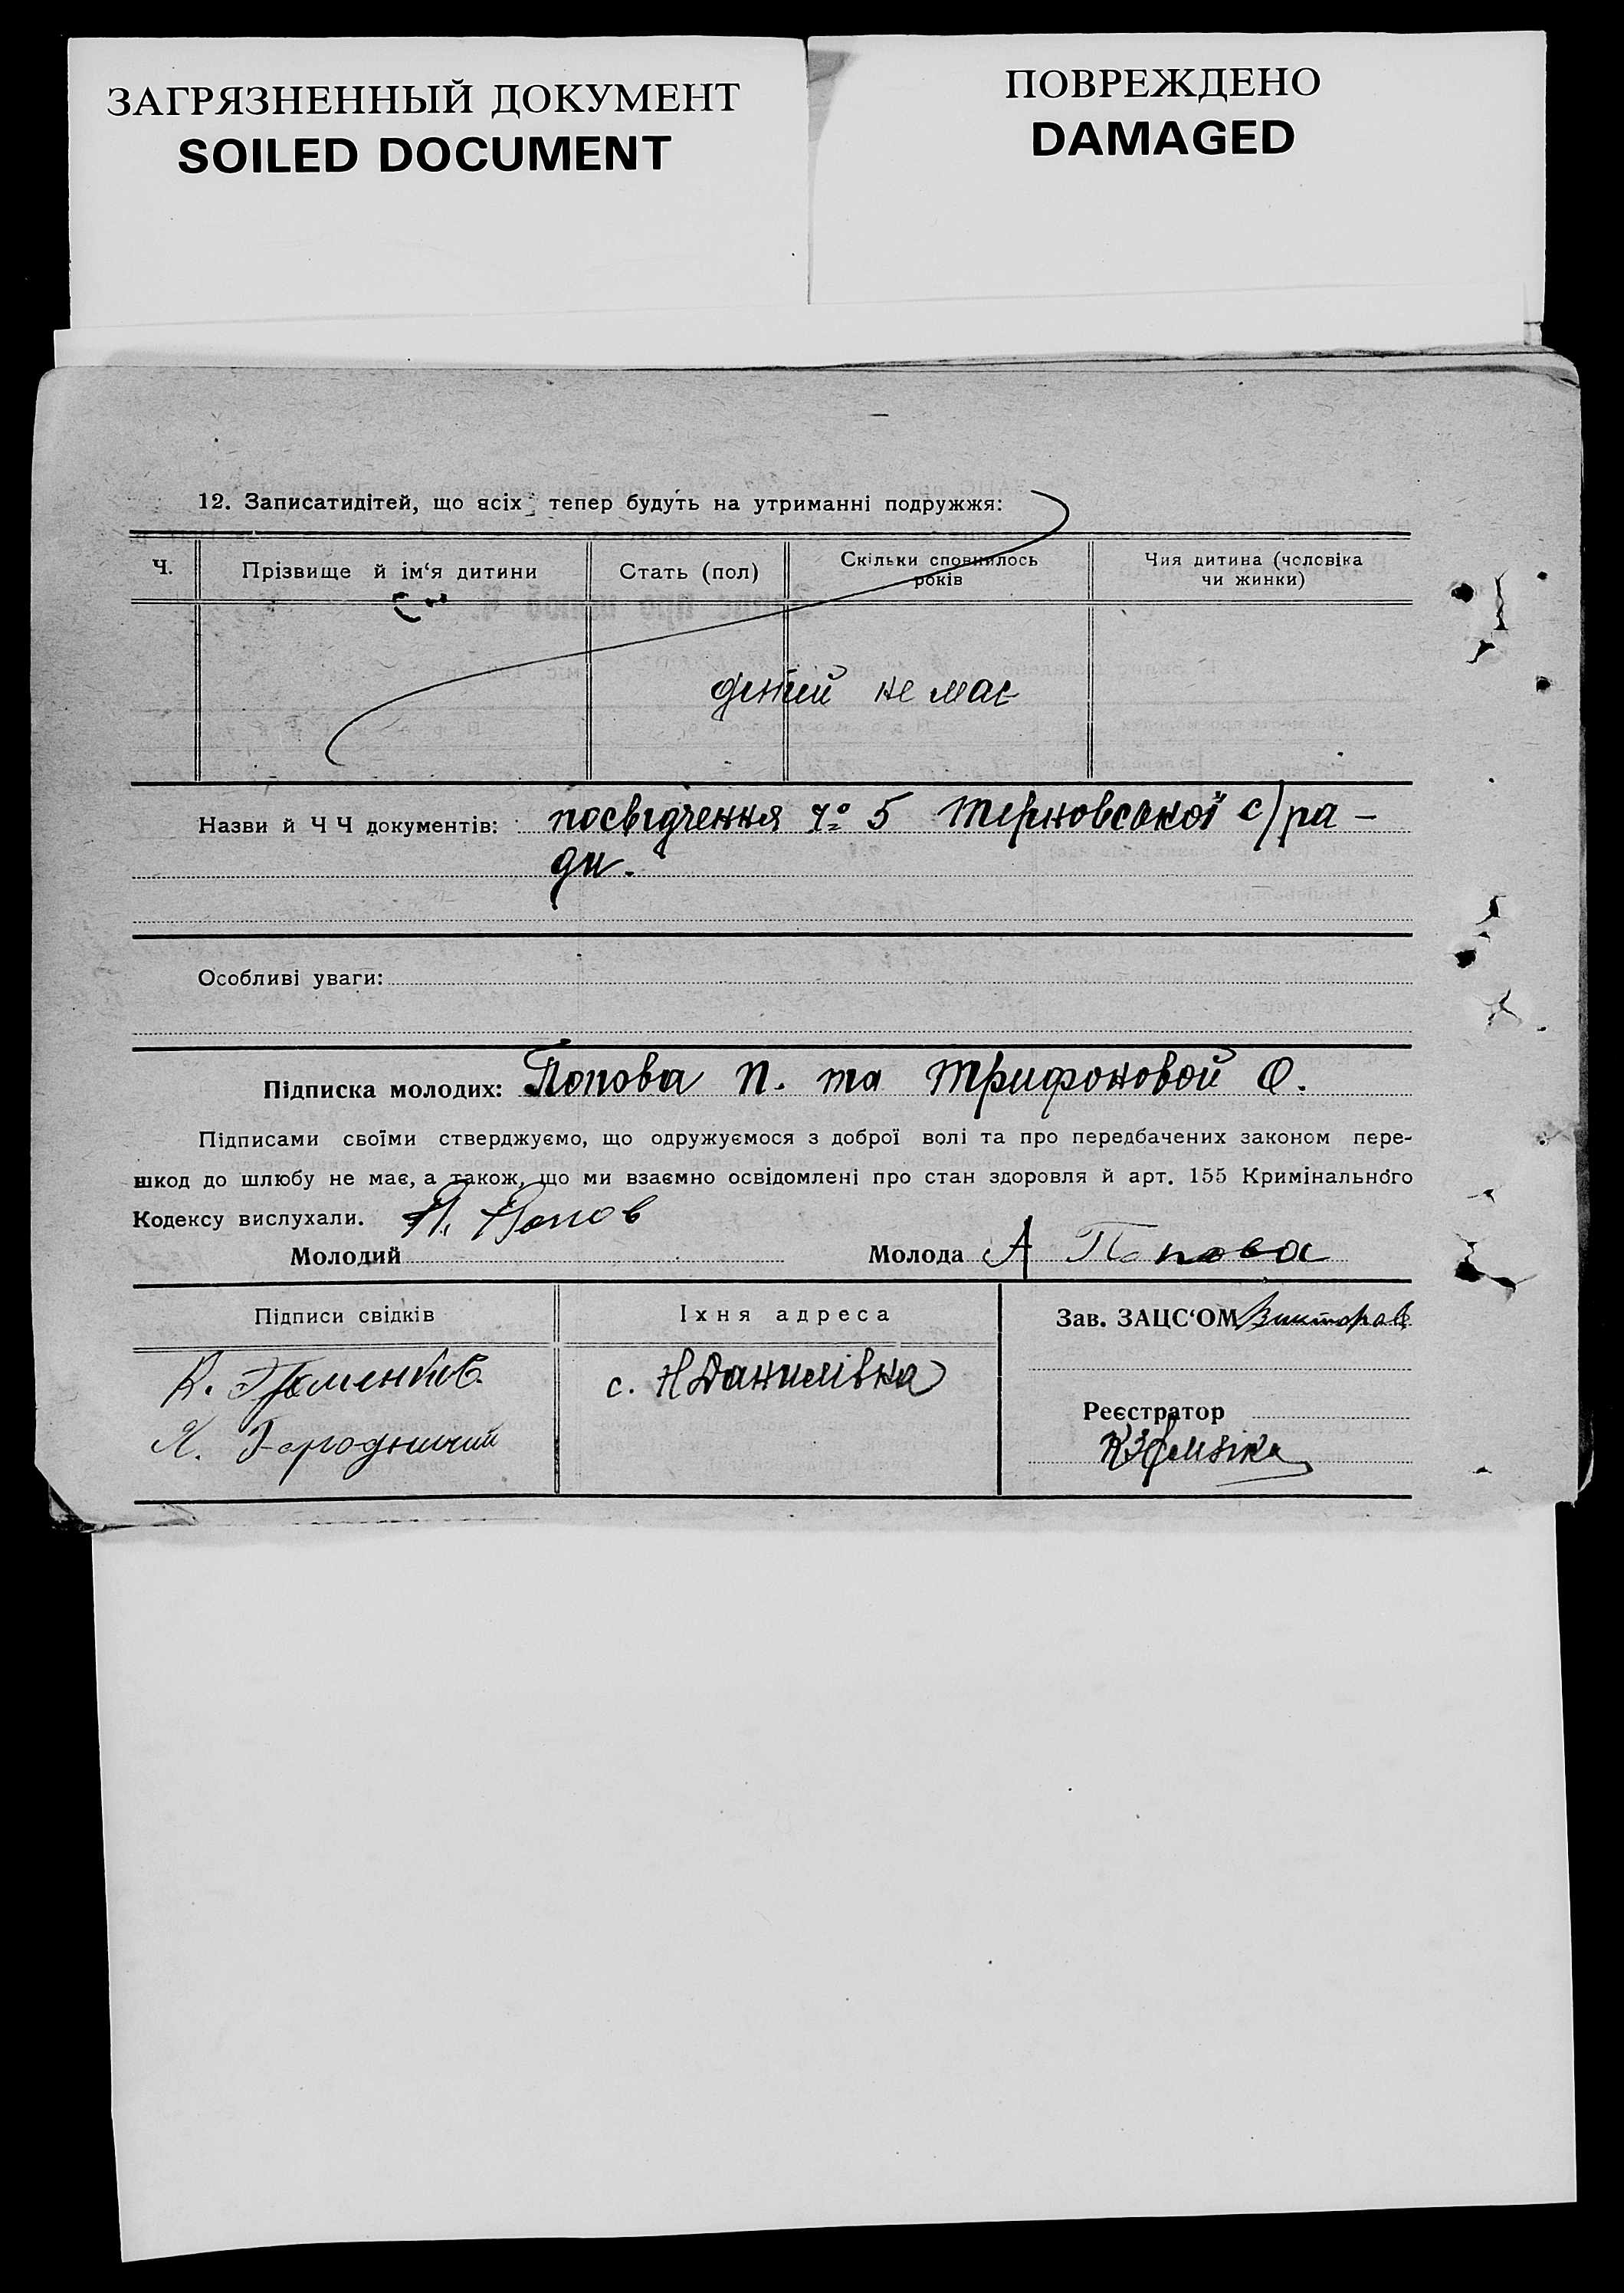 ЗАГРЯЗНЕННЫЙ ДОКУМЕНТ
SOILED DOCUMENT
ПОВРЕЖДЕНО
DAMAGED
12. Записатидітей, що всіх тепер будуть на утриманні подружжя:
Ч. Прізвище й ім‘я дитини Стать (пол) Скільки сповнилось років Чия дитина (чоловіка чи жинки)
дітий не має
Назви й Ч Ч документів: посвідчення Ч° 5 Терновської с/ра-
ди.
Особливі уваги:
Підписка молодих: Попова П. та Трифоновой О.
Підписами своїми стверджуємо, що одружуємося з доброї волі та про передбачених законом пере-
шкод до шлюбу не має, а також, що ми взаємно освідомлені про стан здоровля й арт. 155 Кримінального
Кодексу вислухали. П. Попов
Молодий Молода А Попова
Підписи свідків Іхня адреса Зав. ЗАЦС‘ОМ
К. с. Н Данилівка
Городничий
Реєстратор